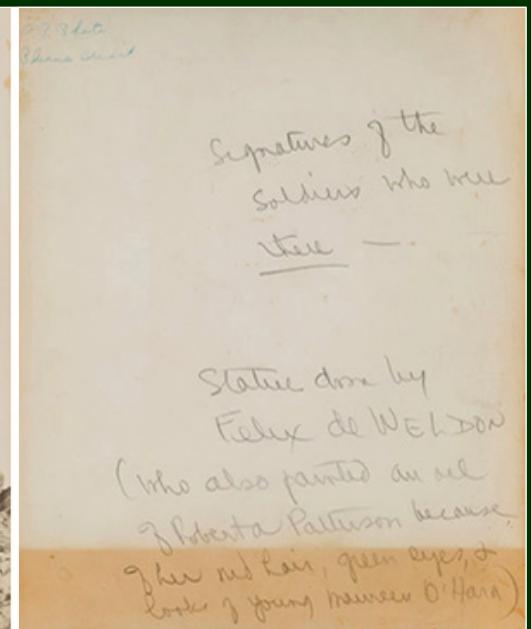 Signatures of the
soldiers who were
there —
Statue done by
Felix de WELDON
(who also painted an oil
of Roberta Patterson because
of her red hair, green eyes, &
looks of young Maureen O'Hara)